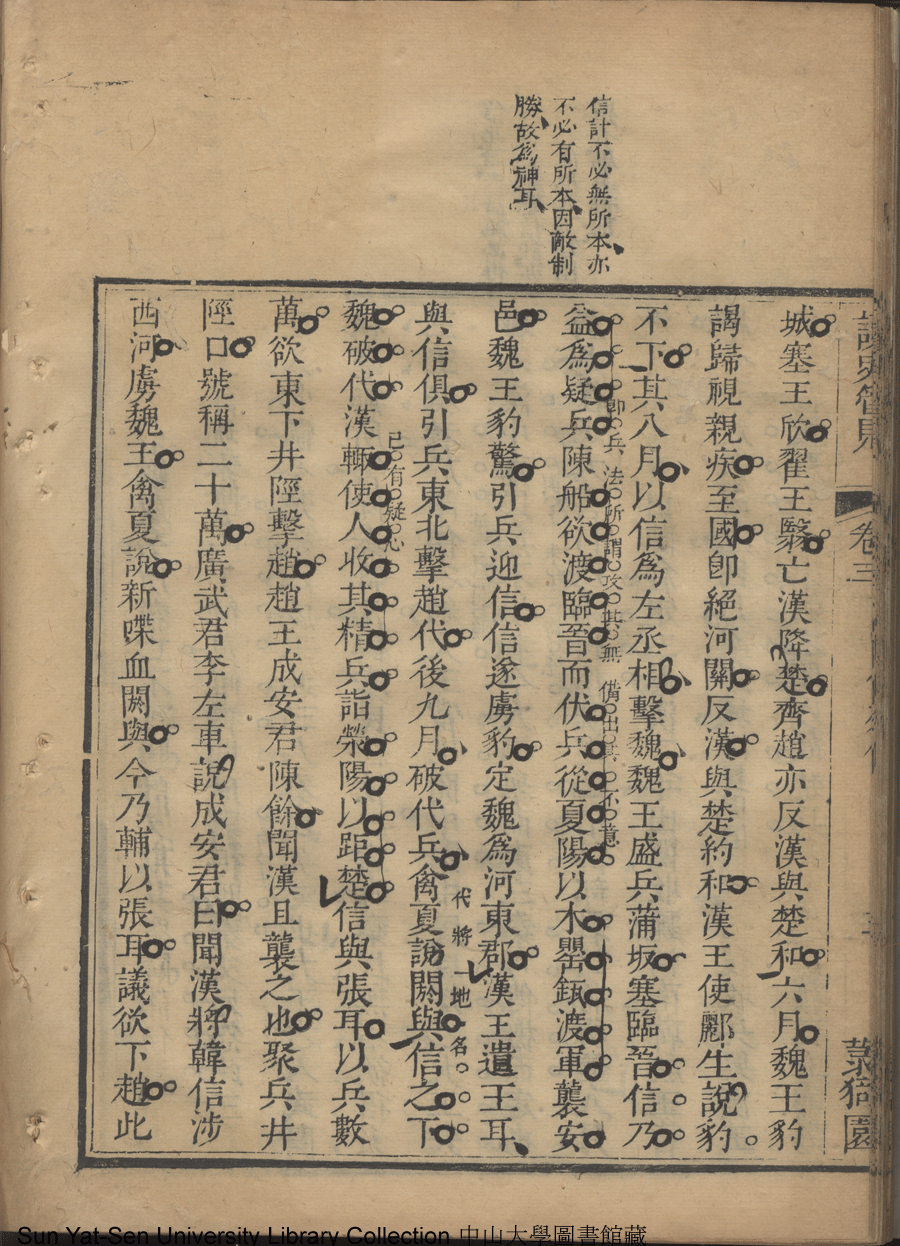 信計不必無所本亦
不必有所本因敵制
勝故爲神耳
卷三
菉猗園
城塞王欣翟王翳亡漢降楚齊趙亦反漢與楚和六月魏王豹
謁歸視親疾至國卽絕河關反漢與楚約和漢王使酈生說豹
不下其八月以信爲左丞相擊魏魏王盛兵蒲坂塞臨晉信乃
益爲疑兵陳船欲渡臨晉而伏兵從夏陽以木罌缻渡軍襲安
卽兵法所謂攻其無備出其不意
邑魏王豹驚引兵迎信信遂虜豹定魏爲河東郡漢王遣王耳
與信俱引兵東北擊趙代後九月破代兵禽夏說閼與信之下
代將
地名
魏破代漢輙使人收其精兵詣滎陽以距楚信與張耳以兵數
已有疑心
萬欲東下井陘擊趙趙王成安君陳餘聞漢且襲之也聚兵井
陘口號稱二十萬廣武君李左車說成安君曰聞漢將韓信涉
西河虜魏王禽夏說新喋血閼與今乃輔以張耳議欲下趙此
Sun Yat-Sen University Library Collection 中山大學圖書館藏